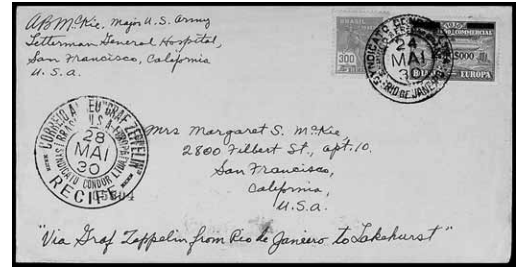 A B McKie. Major U.S. Army
Letterman General Hospital,
San Francisco, California
U.S.a.
BRASIL
300
SYNDICATO CONDOR
24
MAI
30
RIO DE JANEIRO
5$000
EUROPA
CORREIO AEREO "GRAF ZEPPELIN"
BRASIL-U.S.A.-EUROPA
28
MAI
30
SYNDICATO CONDOR LTDA
RECIFE
Mrs Margaret S. McKie,
2800 Filbert St., apt. 10.
San Francisco,
California,
U.S.a.
"Via Graf Zeppelin from Rio de Janiero to Lakehurst"